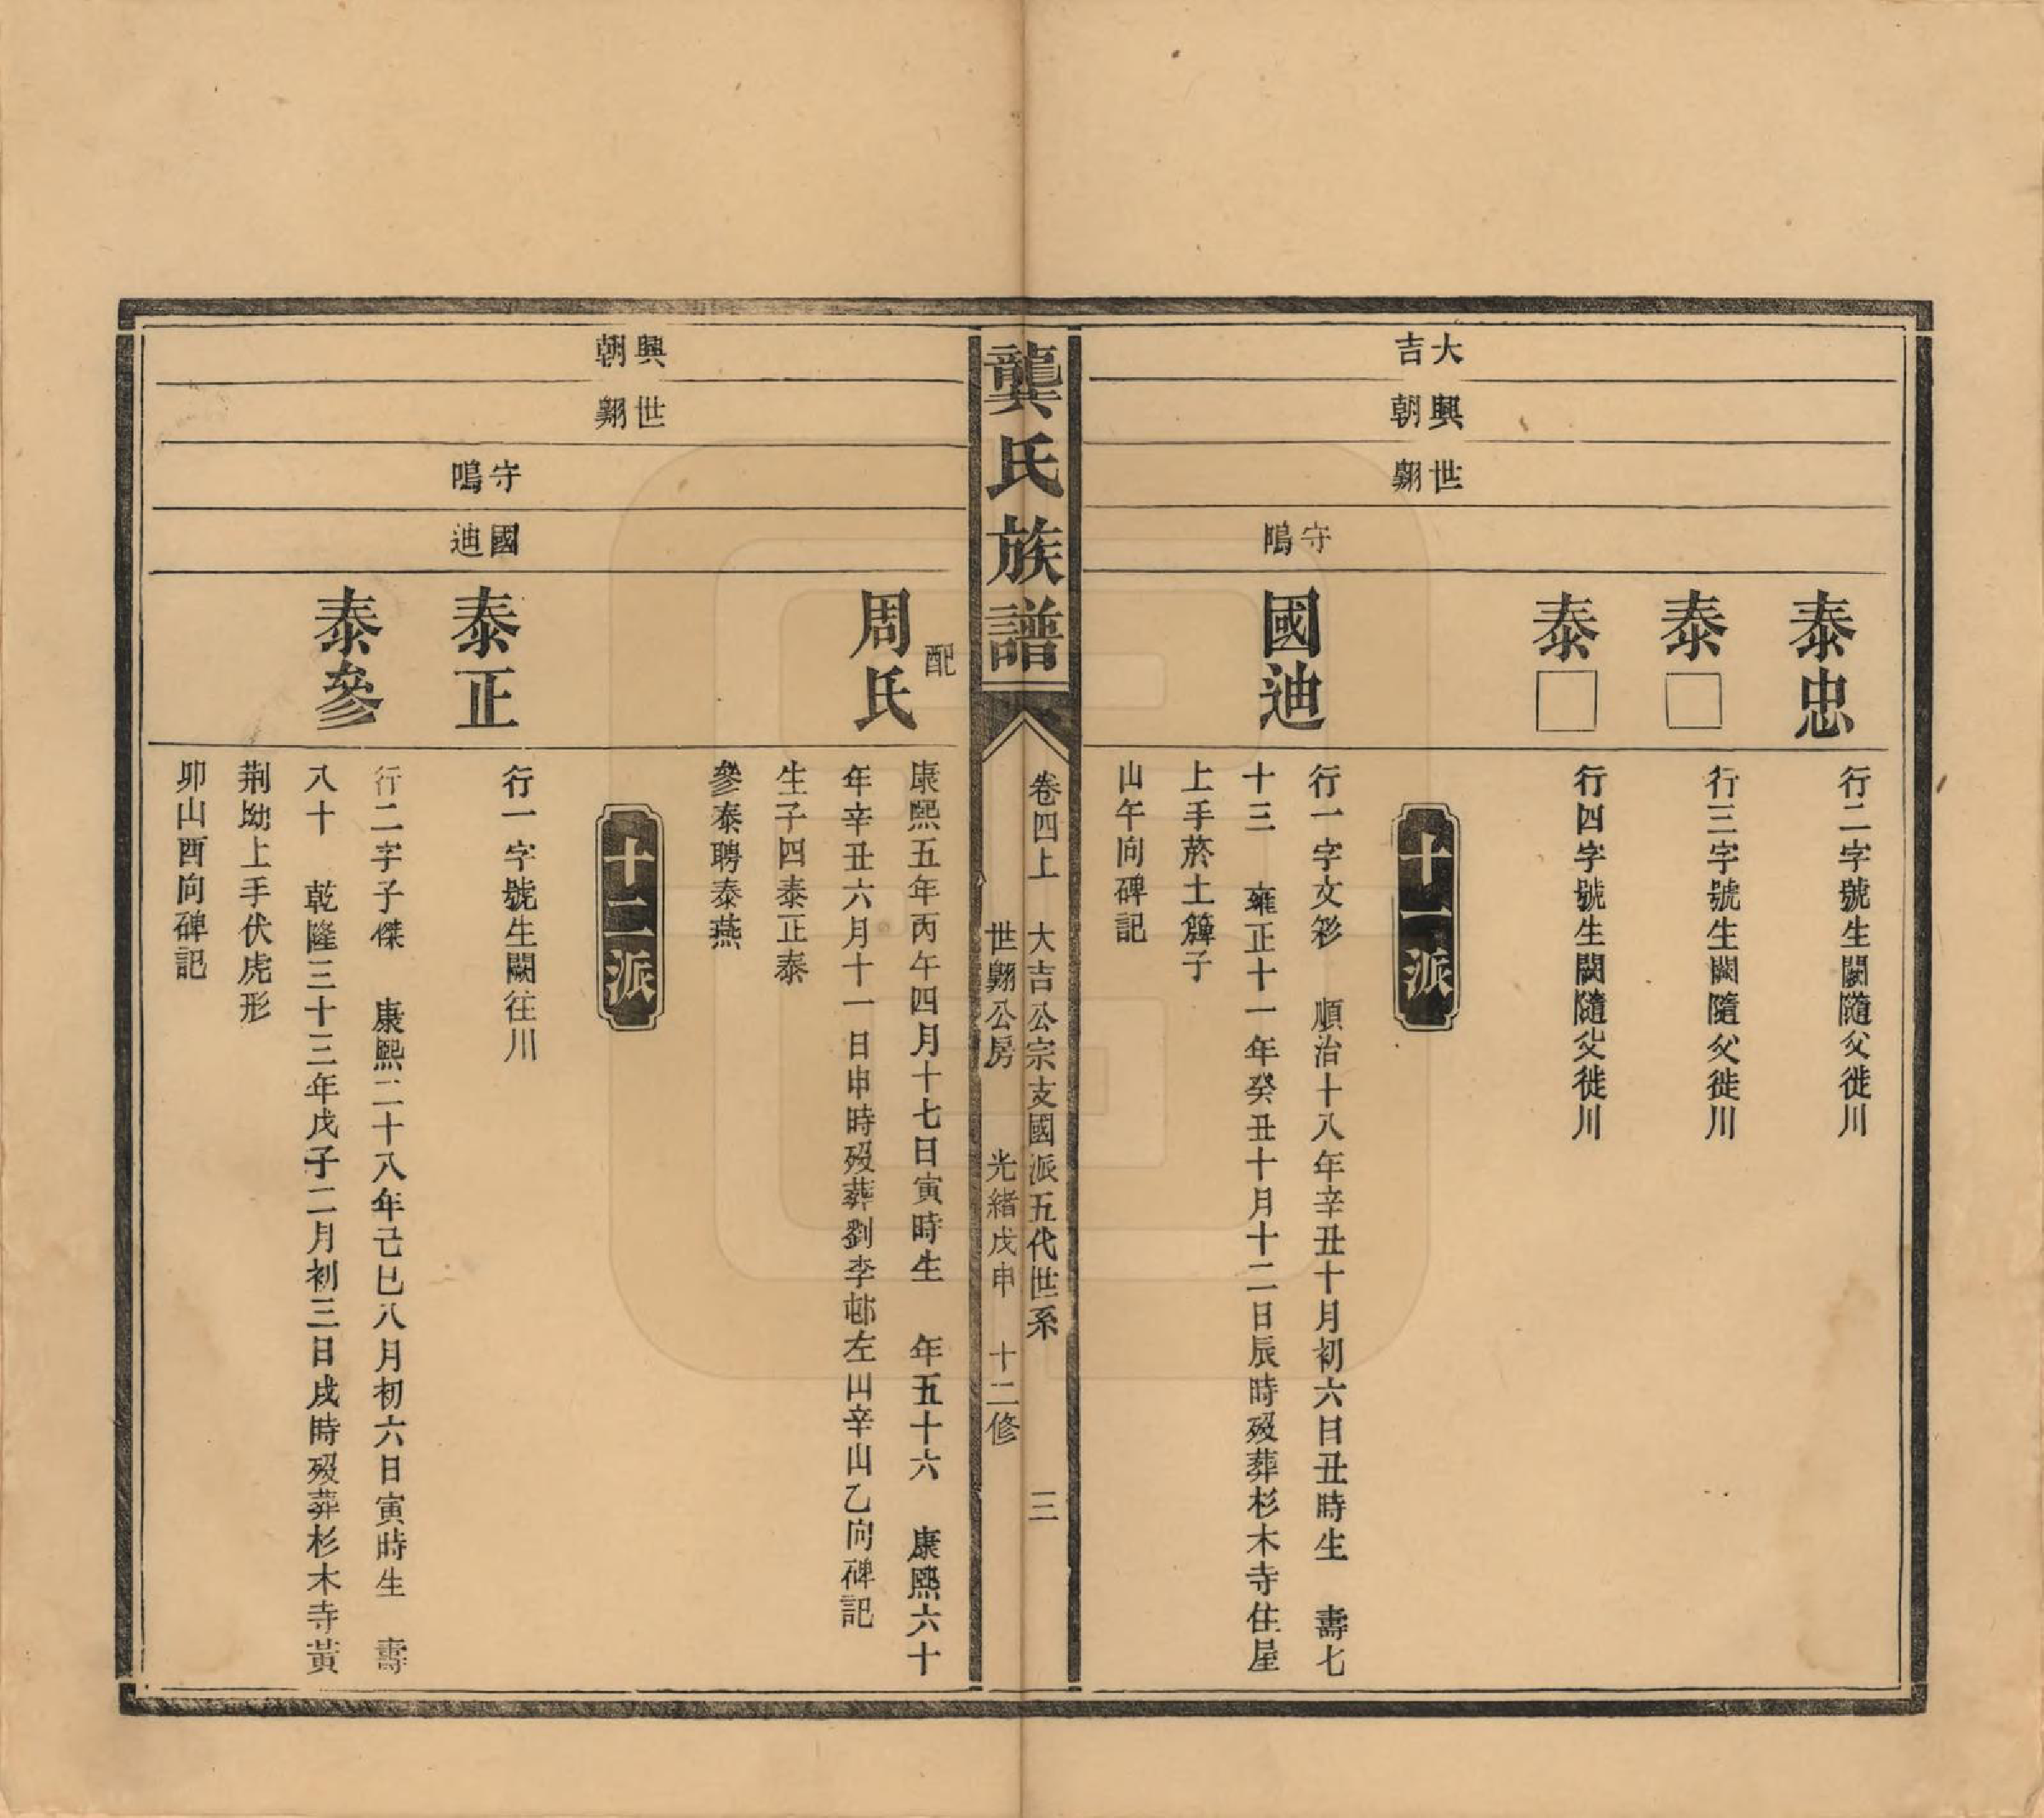 泰忠
行二字號生闕隨父徙川
泰□
行三字號生闕隨父徙川
泰□
行四字號生闕隨父徙川
大吉
興朝
世翺
十一派
守鳴
國迪
行一字文彩 順治十八年辛丑十月初六日丑時生 壽七
十三 雍正十一年癸丑十月十二日辰時歿葬杉木寺住屋
上手菸土簰子
山午向碑記
龔氏族譜
卷四上 大吉公宗支國派五代世系 三
世翺公房 光緒戊申 十二修
配
周氏
康熙五年丙午四月十七日寅時生 年五十六 康熙六十
年辛丑六月十一日申時歿葬劉李邨左山辛山乙向碑記
生子四泰正泰
參泰聘泰燕
興朝
世翺
十二派
守鳴
國迪
泰正
行一字號生闕往川
泰參
行二字子傑 康熙二十八年己巳八月初六日寅時生 壽
八十 乾隆三十三年戊子二月初三日戌時歿葬杉木寺黃
荆坳上手伏虎形
卯山酉向碑記